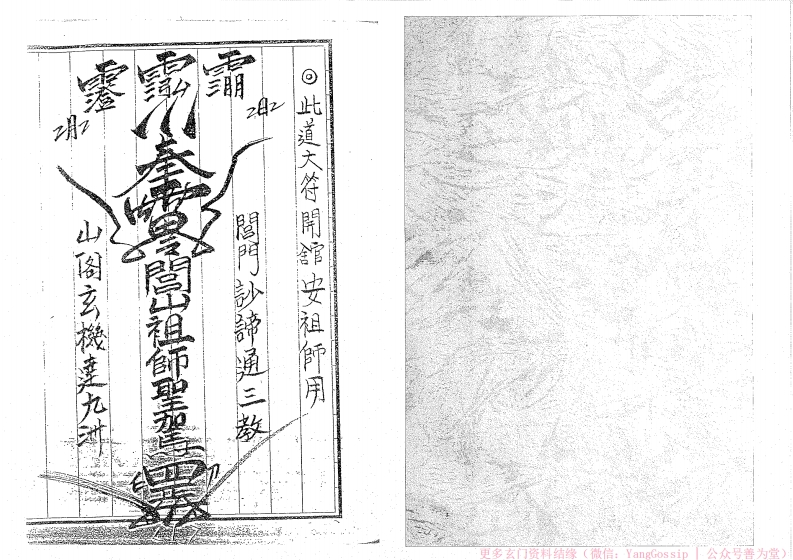 ◎此道大符開舘安祖師用
閭門訬諦通三教
奉
閭山祖師聖駕
山閣玄機達九洲
更多玄门资料结缘（微信：YangGossip | 公众号善为堂）